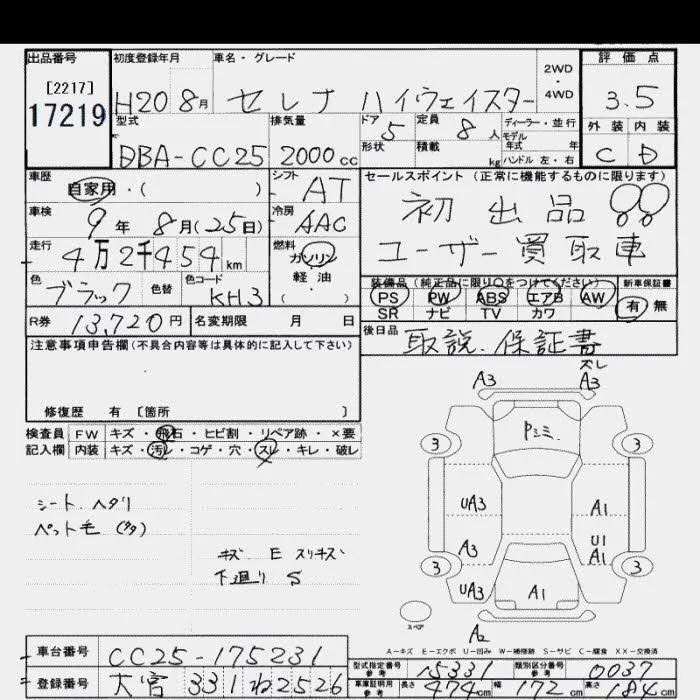 出品番号 初度登録年月 車名・グレード 2WD・4WD 評価点
[2217]
17219 H20 8月 セレナ ハイウェイスター 3.5
型式 排気量 ドア 定員 ディーラー・並行 外装 内装
DBA-CC25 2000cc 5 8人 モデル年式 年式 C D
形状 積載 kg ハンドル 左・右
車歴 シフト セールスポイント(正常に機能するものに限ります)
自家用・( ) AT 初出品!!
車検 冷房
9年 8月(25日) AAC ユーザー買取車
走行 燃料
4万2千454km ガソリン
色 色替 色コード 軽・油 装備品(純正品に限り○をつけてください) 新車保証書
ブラック KH3 (・) PS PW ABS エアB AW 有 無
SR ナビ TV カワ
R券 13,720円 名変期限 月 日 後日品 取説.保証書
注意事項申告欄(不具合内容等は具体的に記入して下さい)
修復歴 有 [箇所 ]
検査員 FW キズ・飛石・ヒビ割・リペア跡・×要
記入欄 内装 キズ・汚レ・コゲ・穴・スレ・キレ・破レ
シート ヘタリ
ペット毛(多)
キズ E スリキズ
下廻り S
ズレ
A3 A3
Pミミ.
3 3
UA3 A1
A3 U1
A1
3 3
UA3 A1
スペア
A2
A−キズ E−エクボ U−凹み W−補修跡 S−サビ C−腐食 XX−交換済
車台番号 CC25-175231
型式指定番号 参考 15331 類別区分番号 参考 0037
登録番号 大宮 331 ね 2526
車庫証明用 参考 長さ 474cm 幅 172cm 高さ 184cm